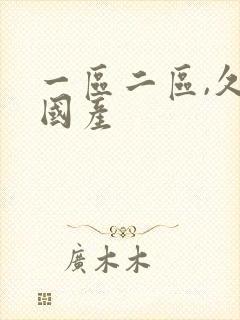 一區二區,久
國産
廣木木